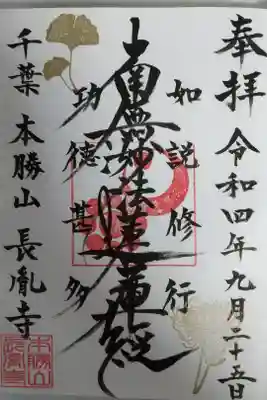 奉拝 令和四年九月二十五日
如説修行
南無妙法蓮華経
功徳甚多
千葉 本勝山 長胤寺